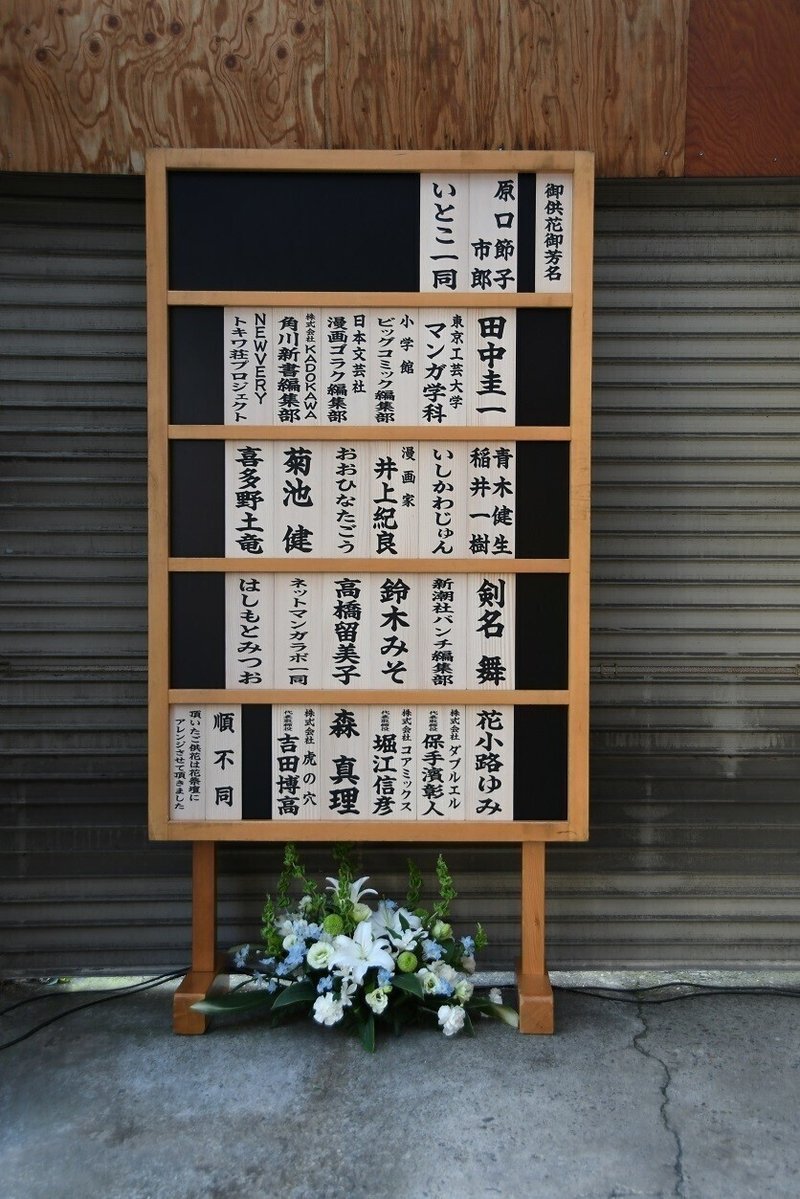 御供花御芳名
原口節子
市郎
いとこ一同
田中圭一
東京工芸大学
マンガ学科
小学館
ビッグコミック編集部
日本文芸社
漫画ゴラク編集部
株式会社KADOKAWA
角川新書編集部
NEWVERY
トキワ荘プロジェクト
青木健生
稲井一樹
いしかわじゅん
漫画家
井上紀良
おおひなたごう
菊池健
喜多野土竜
剣名舞
新潮社バンチ編集部
鈴木みそ
高橋留美子
ネットマンガラボ一同
はしもとみつお
花小路ゆみ
株式会社ダブルエル
代表取締役
保手濱彰人
株式会社コアミックス
代表取締役
堀江信彦
森真理
株式会社虎の穴
代表取締役
吉田博高
順不同
頂いたご供花は花祭壇に
アレンジさせて頂きました